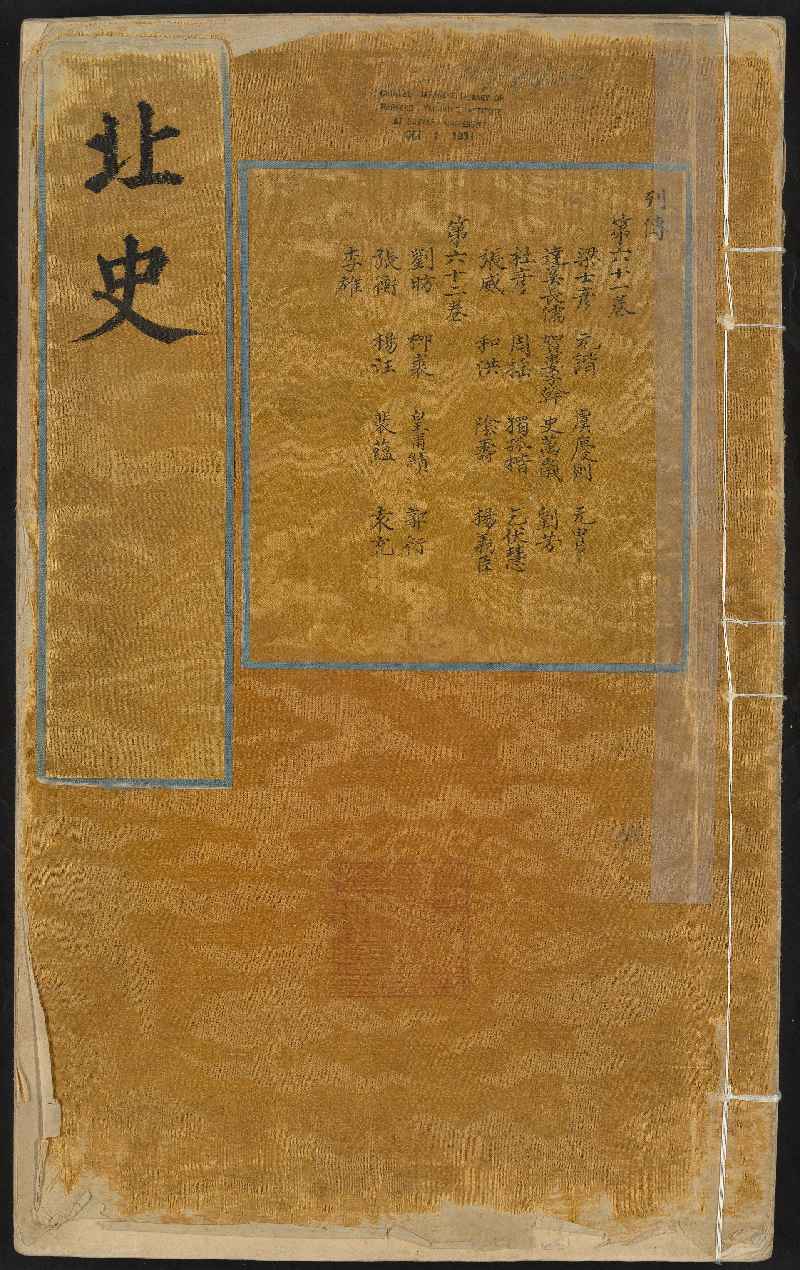 北史
列傳
第六十一卷
梁士彥 元諧 虞慶則 元冑
達奚長儒 賀婁子幹 史萬歲 劉方
杜彥 周搖 獨孤楷 乞伏慧
張威 和洪 陰壽 楊義臣
第六十二卷
劉昉 柳裘 皇甫績 郭衍
張衡 楊汪 裴蘊 袁充
李雄
CHINESE-JAPANESE LIBRARY OF